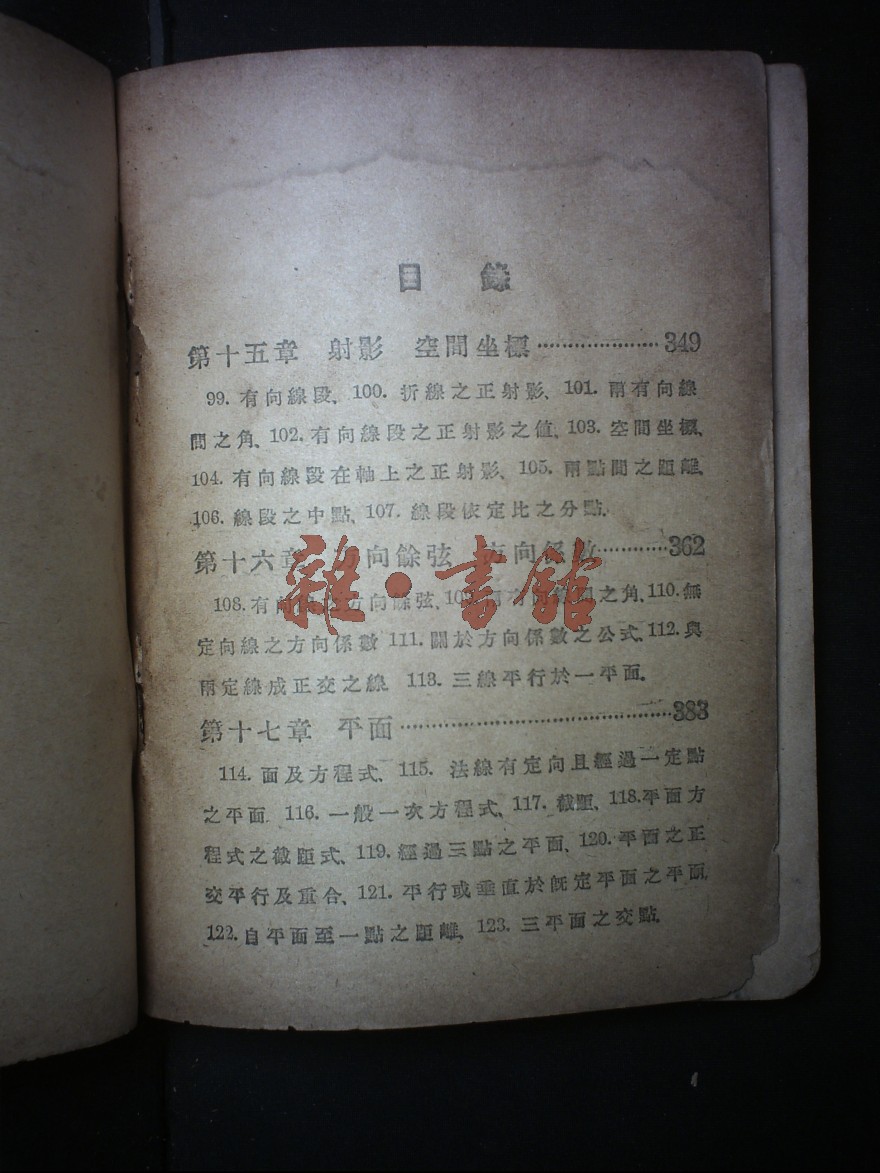 目 錄
第十五章 射影 空間坐標…………………349
99. 有向線段、 100. 折線之正射影、 101. 兩有向線
間之角、 102. 有向線段之正射影之值、 103. 空間坐標、
104. 有向線段在軸上之正射影、 105. 兩點間之距離、
106. 線段之中點、 107. 線段依定比之分點.
第十六章 方向餘弦 方向係數…………362
108. 有向線之方向餘弦、 之角、 110. 無
定向線之方向係數 111. 關於方向係數之公式、 112. 與
兩定線成正交之線. 113. 三線平行於一平面.
第十七章 平面……………………………………383
114. 面及方程式、 115. 法線有定向且經過一定點
之平面. 116. 一般一次方程式、 117. 截距、 118. 平面方
程式之截距式、 119. 經過三點之平面、 120. 平面之正
交平行及重合、 121. 平行或垂直於旣定平面之平面.
122. 自平面至一點之距離、 123. 三平面之交點.
雜·書館